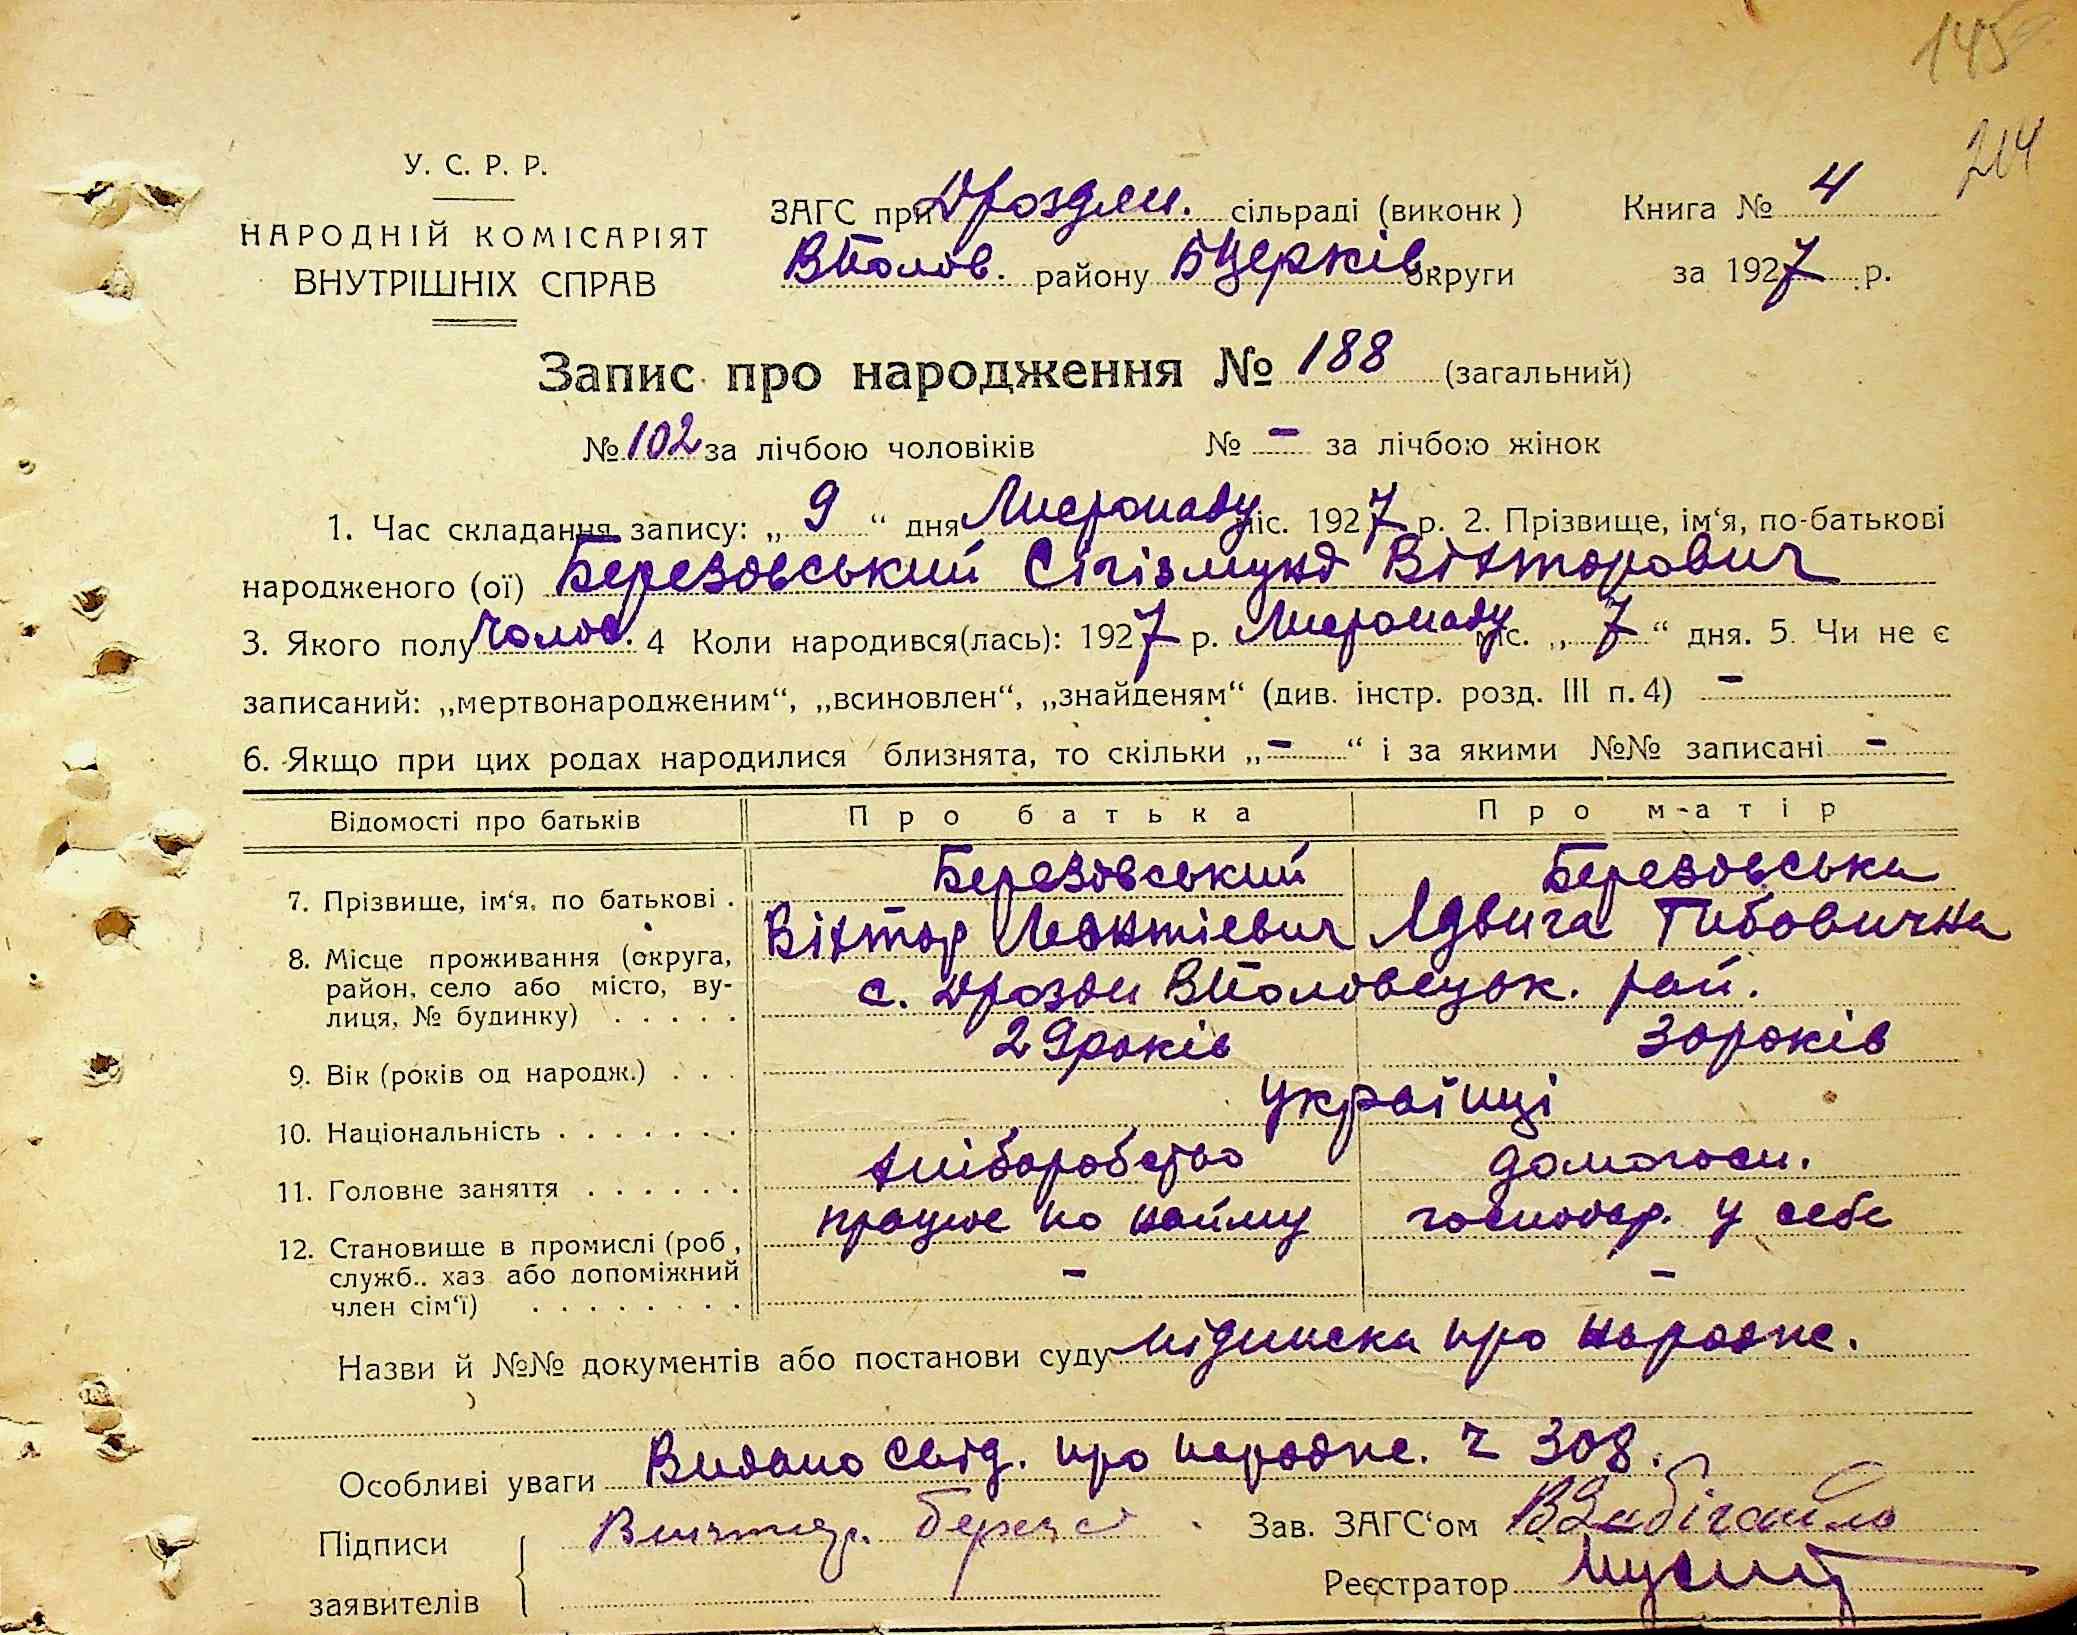 145
204
У. С. Р. Р.
НАРОДНІЙ КОМІСАРІЯТ
ВНУТРІШНІХ СПРАВ
ЗАГС при Дроздян. сільраді (виконк)
ВПолов. району БЦерків округи
Книга № 4
за 1927 р.
Запис про народження № 188 (загальний)
№ 102 за лічбою чоловіків № – за лічбою жінок
1. Час складання запису: „ 9 “ дня Листопаду міс. 1927 р. 2. Прізвище, ім‘я, по-батькові
народженого (ої) Березовський Сігізмунд Вікторович
3. Якого полу Чолов. 4 Коли народився(лась): 1927 р. Листопаду міс. „ 7 “ дня. 5. Чи не є
записаний: „мертвонародженим“, „всиновлен“, „знайденям“ (див. інстр. розд. III п. 4) –
6. Якщо при цих родах народилися близнята, то скільки „ – “ і за якими №№ записані –
Відомості про батьків Про батька Про матір
7. Прізвище, ім‘я, по батькові . Березовський Березовська
Віктор Леонтієвич Ядвига Тибовична
8. Місце проживання (округа, район, село або місто, вулиця, № будинку) . . . . . с. Дрозди ВПоловецьк. рай.
9. Вік (років од народж.) . . . 29 років 30 років
10. Національність . . . . . . . українці
11. Головне заняття . . . . . . хліборобство домогосп.
працює по найму господар. у себе
12. Становище в промислі (роб, служб.. хаз або допоміжний член сім‘ї) . . . . . . . . – –
Назви й №№ документів або постанови суду підписка про народж.
Особливі уваги Видано свід. про народж. Ч 308.
Підписи
заявителів
Виктор. Берез
Зав. ЗАГС‘ом ВЗабігайло
Реєстратор